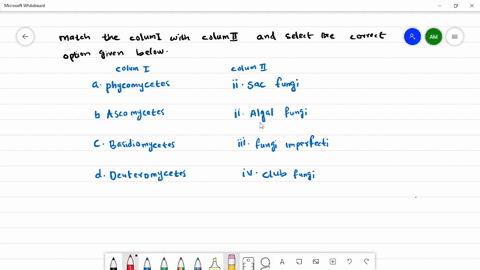 Microsoft Whiteboard
match the columI with columII and select the correct
option given below.
colum I colum II
a. phycomycetes ii. sac fungi
b Ascomycetes ii. Algal fungi
c. Basidiomycetes iii. fungi imperfecti
d. Deuteromycetes iv. club fungi
AM
A